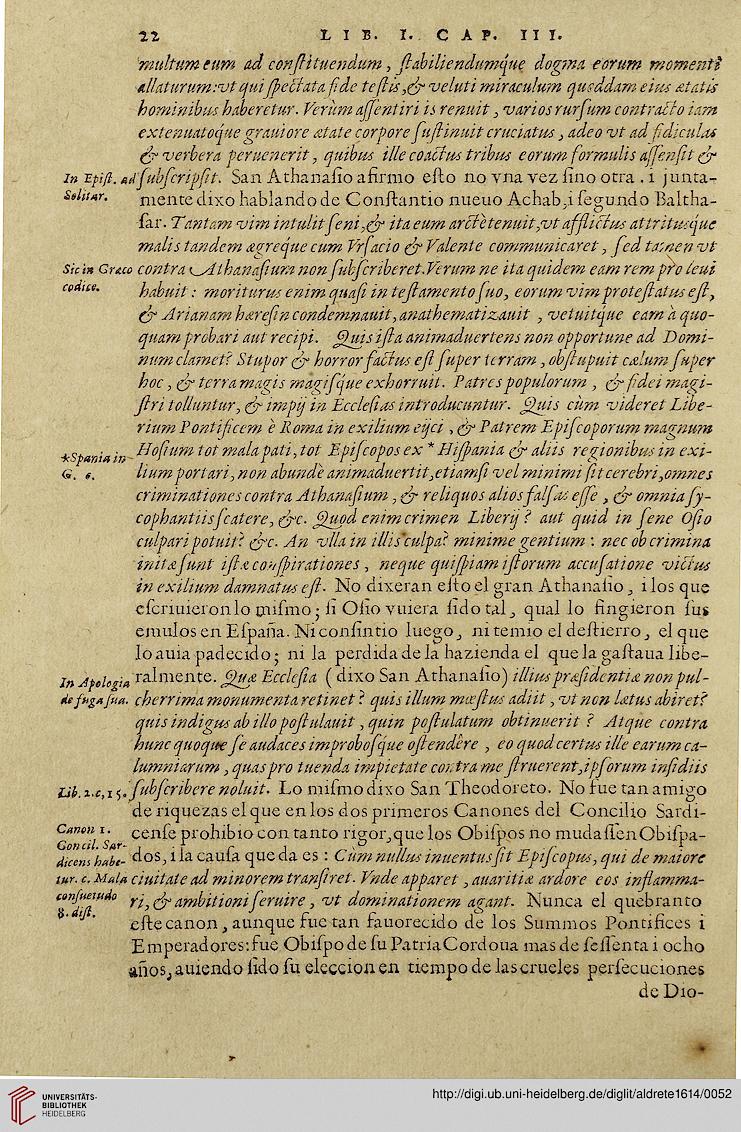 22 LIB. I. CAP. III.
multum eum ad conſtituendum, ſtabiliendumque dogma eorum momenti
allaturum: vt qui ſpectata fide teſtis, & veluti miraculum quoddam eius ætatis
hominibus haberetur. Verùm aſſentiri is renuit, varios rurſum contracto iam
extenuatoque grauiore ætate corpore ſuſtinuit cruciatus, adeo vt ad fidiculas
& verbera peruenerit, quibus ille coactus tribus eorum formulis aſſenſit &
In Epiſt. ad
Solitar.
ſubſcripſit. San Athanaſio afirmo eſto no vna vez ſino otra. i junta-
mente dixo hablando de Conſtantio nueuo Achab, i ſegundo Baltha-
ſar. Tantam vim intulit ſeni, & ita eum arctè tenuit, vt afflictus attrituſque
malis tandem ægreque cum Vrſacio & Valente communicaret, ſed tamen vt
Sic in Græco
codice.
contra Athanaſium non ſubſcriberet. Verum ne ita quidem eam rem pro leui
habuit: moriturus enim quaſi in teſtamento ſuo, eorum vim proteſtatus eſt,
& Arianam hæreſin condemnauit, anathematizauit, vetuitque eam à quo-
quam probari aut recipi. Quis iſta animaduertens non opportune ad Domi-
num clamet? Stupor & horror factus eſt ſuper terram, obſtupuit cælum ſuper
hoc, & terra magis magiſque exhorruit. Patres populorum, & fidei magi-
ſtri tolluntur, & impij in Eccleſias introducuntur. Quis cùm videret Libe-
rium Pontificem è Roma in exilium eijci, & Patrem Epiſcoporum magnum
*Spania in
G. 6.
Hoſium tot mala pati, tot Epiſcopos ex * Hiſpania & aliis regionibus in exi-
lium portari, non abundè animaduertit, etiamſi vel minimi ſit cerebri, omnes
criminationes contra Athanaſium, & reliquos alios falſas eſſe, & omnia ſy-
cophantiis ſcatere, &c. Quod enim crimen Liberij? aut quid in ſene Oſio
culpari potuit? &c. An vlla in illis culpa? minime gentium: nec ob crimina
initæ ſunt iſtæ conſpirationes, neque quiſpiam iſtorum accuſatione victus
in exilium damnatus eſt. No dixeran eſto el gran Athanaſio, i los que
eſcriuieron lo miſmo; ſi Oſio vuiera ſido tal, qual lo fingieron ſus
emulos en Eſpaña. Ni conſintio luego, ni temio el deſtierro, el que
lo auia padecido; ni la perdida de la hazienda el que la gaſtaua libe-
In Apologia
de fuga ſua.
ralmente. Quæ Eccleſia (dixo San Athanaſio) illius præſidentiæ non pul-
cherrima monumenta retinet? quis illum mæſtus adiit, vt non lætus abiret?
quis indigus ab illo poſtulauit, quin poſtulatum obtinuerit? Atque contra
hunc quoque ſe audaces improboſque oſtendêre, eo quod certus ille earum ca-
lumniarum, quas pro tuenda impietate contra me ſtruerent, ipſorum inſidiis
Lib. 2. c, 15.
ſubſcribere noluit. Lo miſmo dixo San Theodoreto. No fue tan amigo
de riquezas el que en los dos primeros Canones del Concilio Sardi-
Canon 1.
Concil. Sar-
dicens habe-
tur. c. Mala
conſuetudo
8. diſt.
cenſe prohibio con tanto rigor, que los Obiſpos no mudaſſen Obiſpa-
dos, i la cauſa que da es: Cum nullus inuentus ſit Epiſcopus, qui de maiore
ciuitate ad minorem tranſiret. Vnde apparet, auaritiæ ardore eos inflamma-
ri, & ambitioni ſeruire, vt dominationem agant. Nunca el quebranto
eſte canon, aunque fue tan fauorecido de los Summos Pontifices i
Emperadores: fue Obiſpo de ſu Patria Cordoua mas de ſeſſenta i ocho
años, auiendo ſido ſu eleccion en tiempo de las crueles perſecuciones
de Dio-
UNIVERSITÄTS-
BIBLIOTHEK
HEIDELBERG
http://digi.ub.uni-heidelberg.de/diglit/aldrete1614/0052